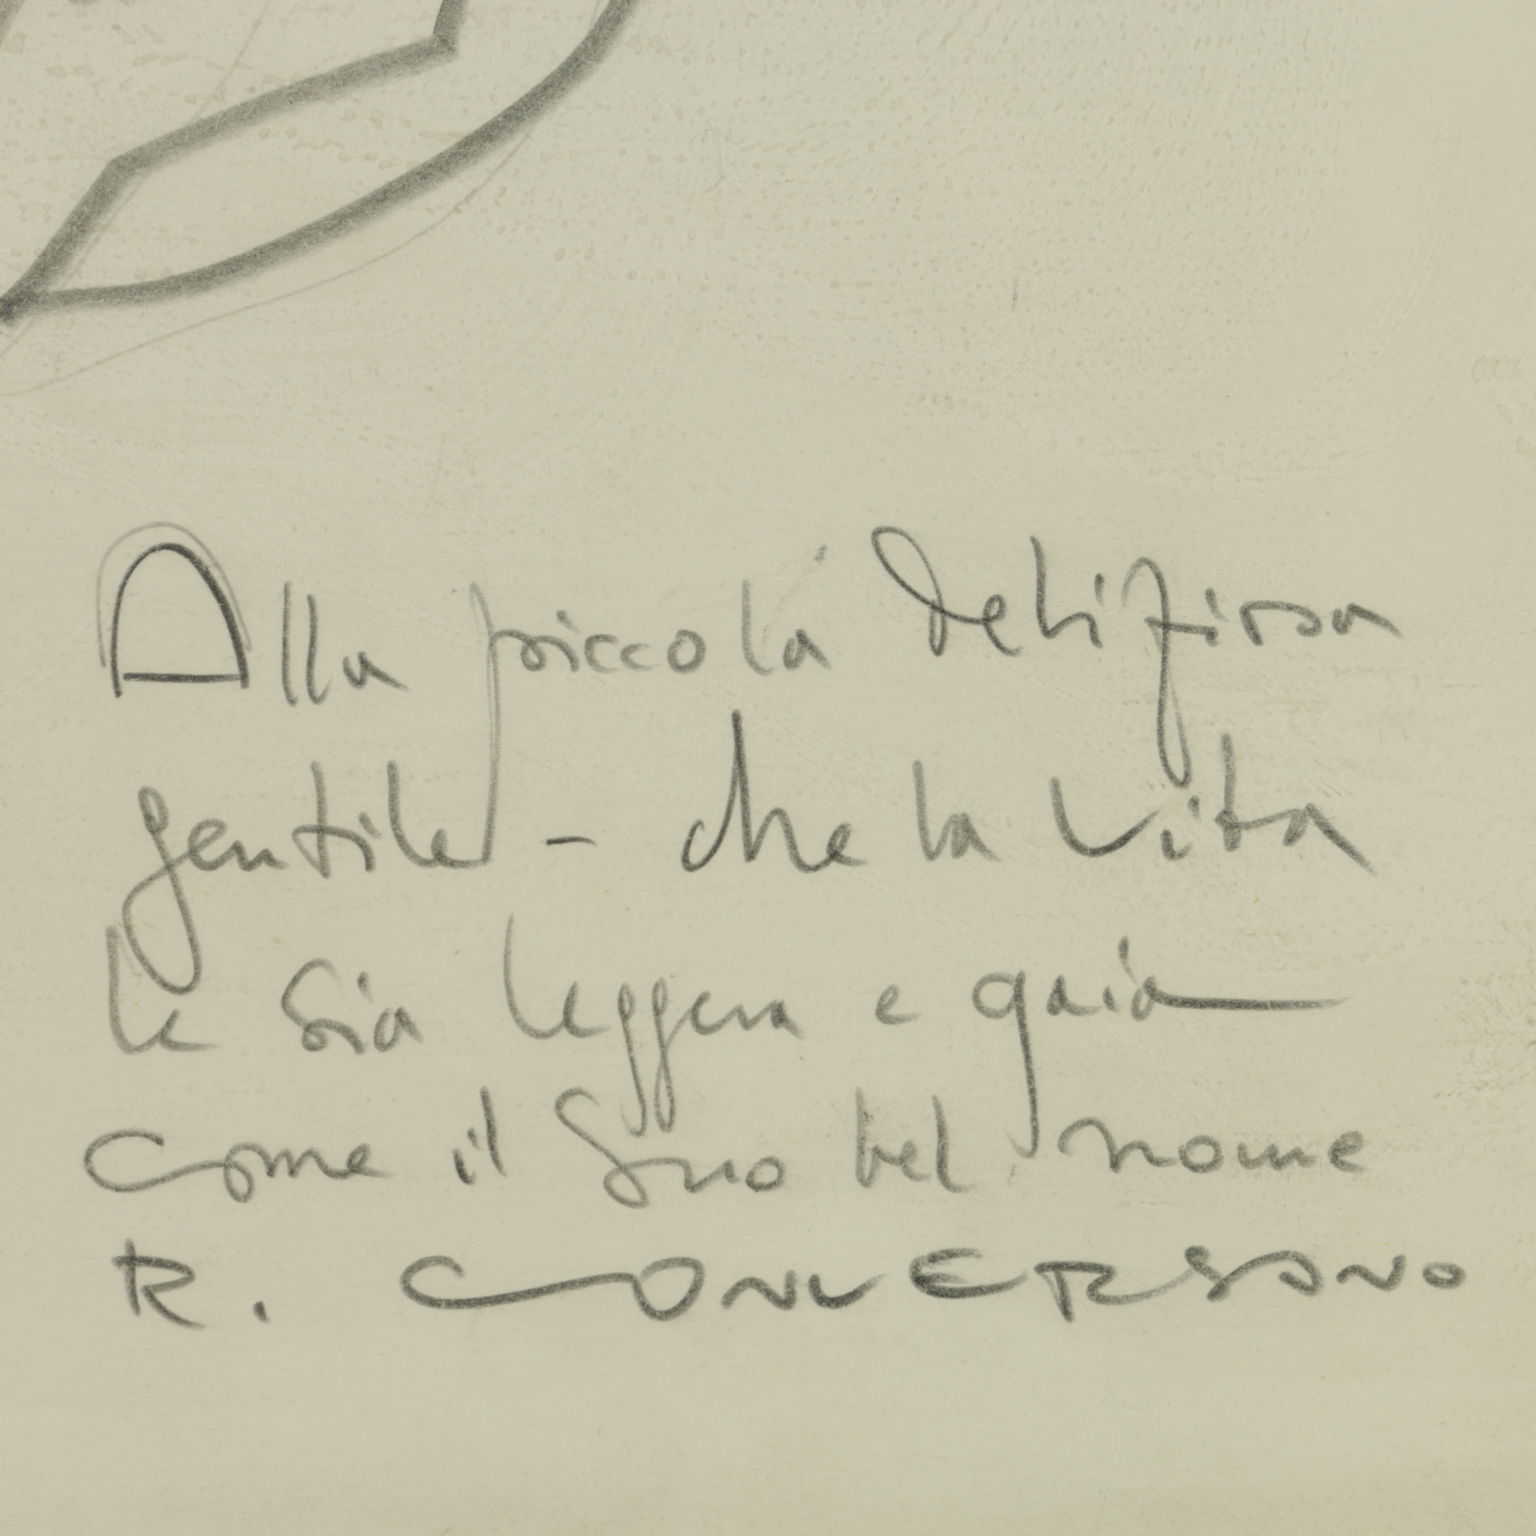 Alla piccola deliziosa
gentile - che la vita
le sia leggera e gaia
come il suo bel nome
R. CONVERSANO